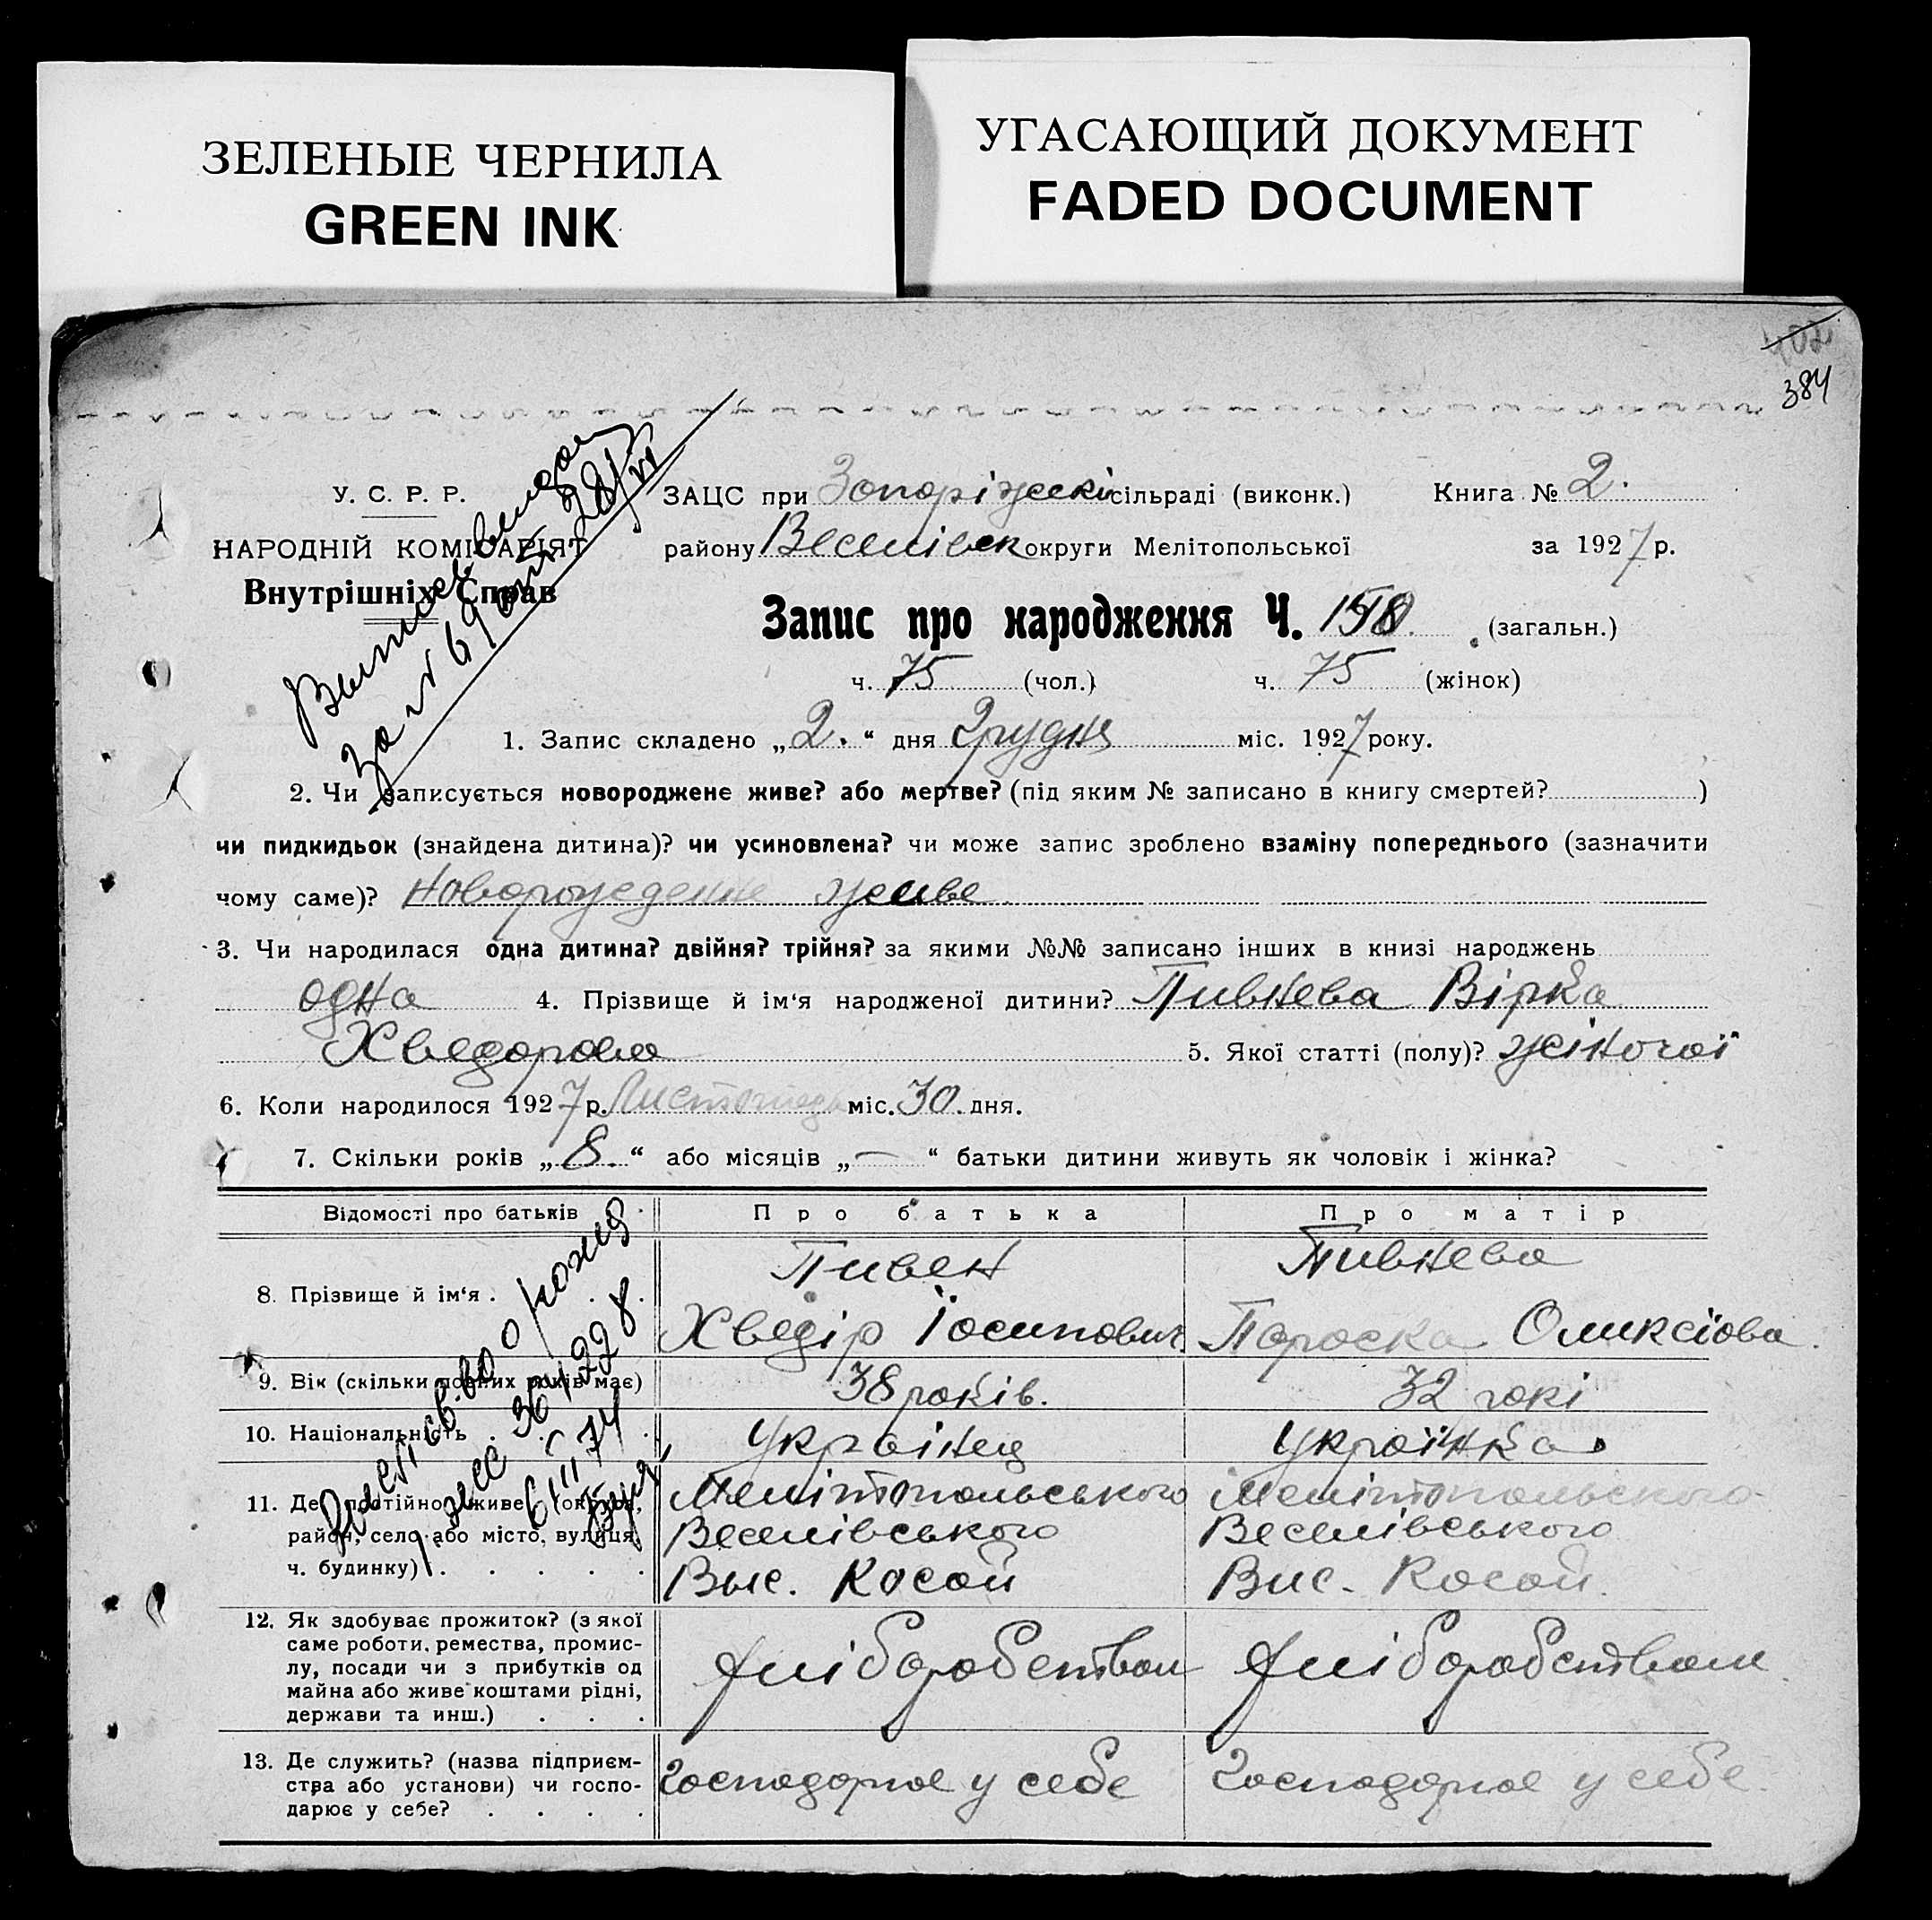 ЗЕЛЕНЫЕ ЧЕРНИЛА
GREEN INK
УГАСАЮЩИЙ ДОКУМЕНТ
FADED DOCUMENT
384
У. С. Р. Р.
НАРОДНІЙ КОМІСАРІЯТ
Внутрішніх Справ
ЗАЦС при Запоріжскі сільраді (виконк.) Книга № 2.
району Веселівск округи Мелітопольської за 1927 р.
Запис про народження Ч. (загальн.)
ч. 75 (чол.) ч. 75 (жінок)
1. Запис складено „2.“ дня Грудня міс. 1927 року.
2. Чи записується новороджене живе? або мертве? (під яким № записано в книгу смертей? )
чи пидкидьок (знайдена дитина)? чи усиновлена? чи може запис зроблено взаміну попереднього (зазначити
чому саме)? Новорожденне живе
3. Чи народилася одна дитина? двійня? трійня? за якими №№ записано інших в книзі народжень
одна 4. Прізвище й ім‘я народженої дитини? Пивнева Вірка
Хведорова 5. Якої статті (полу)? жіночої
6. Коли народилося 1927 р. Листопада міс. 30. дня.
7. Скільки років „8.“ або місяців „—“ батьки дитини живуть як чоловік і жінка?
Відомості про батьків Про батька Про матір
8. Прізвище й ім‘я . . .
Пивен
Хведір Іосипович
Пивнева
Пароска Оликсіова
9. Вік (скільки повних років має) 38 років. 32 рокі
10. Національність . . . Українец Українка
11. Де постійно живе (округа,
район, село або місто, вулиця,
ч. будинку) . . . . .
Мелітопольського
Веселівського
Выс. Косой
Мелітопольского
Веселівського
Вис. Косой
12. Як здобуває прожиток? (з якої
саме роботи, ремества, промис-
лу, посади чи з прибутків од
майна або живе коштами рідні,
держави та инш.) . . .
хліборобством
хліборобством
13. Де служить? (назва підприєм-
ства або установи) чи госпо-
дарює у себе? . . . .
Господарює у себе
Господарює у себе